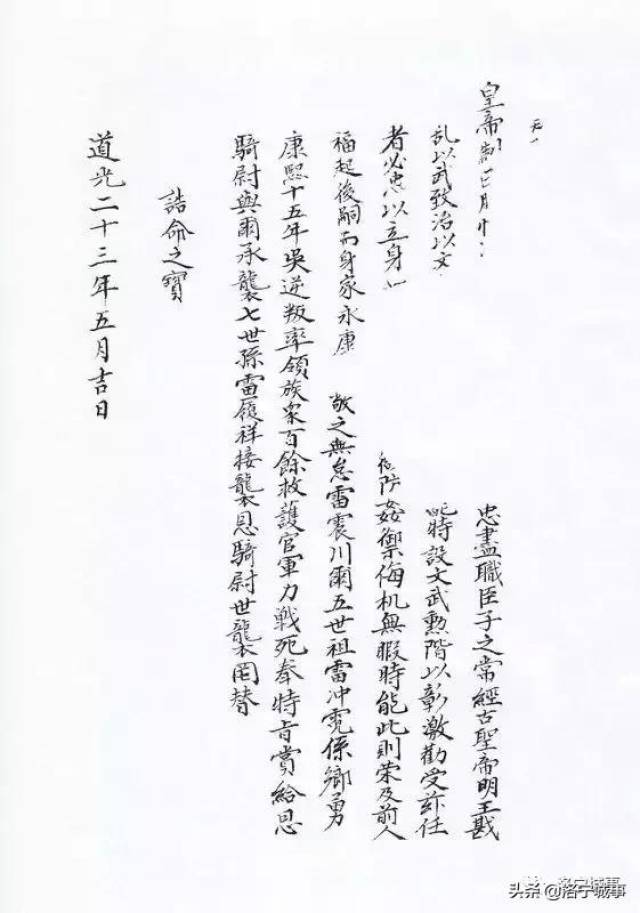 皇帝 忠盡職臣子之常經古聖帝明王戡
乱以武致治以文 時設文武勲階以彰激勸受茲任
者必忠以立身 防姦禦侮机無暇時能此則荣及前人
福起後嗣而身家永康 敬之無怠雷震川爾五世祖雷冲霓係鄉勇
康熙十五年吴逆叛率領族衆百餘救護官軍力戦死奉特旨賞給恩
騎尉與爾承襲七世孫雷履祥接襲恩騎尉世襲罔替
誥命之寳
道光二十三年五月吉日
头条 @洛宁城事